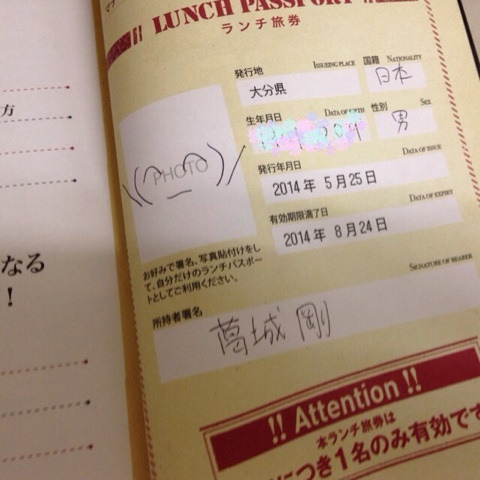 LUNCH PASSPORT
ランチ旅券
発行地 ISSUEING PLACE
大分県
国籍 NATIONALITY
日本
生年月日 DATA OF BIRTH
性別 SEX
男
発行年月日 DATA OF ISSUE
2014年 5月25日
有効期限満了日 DATA OF EXPIRY
2014年 8月24日
PHOTO
お好みで署名、写真貼付けをし
て、自分だけのランチパスポー
トとしてご利用ください。
所持者署名 SIGNATURE OF BEARER
葛城 剛
!! Attention !!
本ランチ旅券は
につき1名のみ有効です
方
なる
!